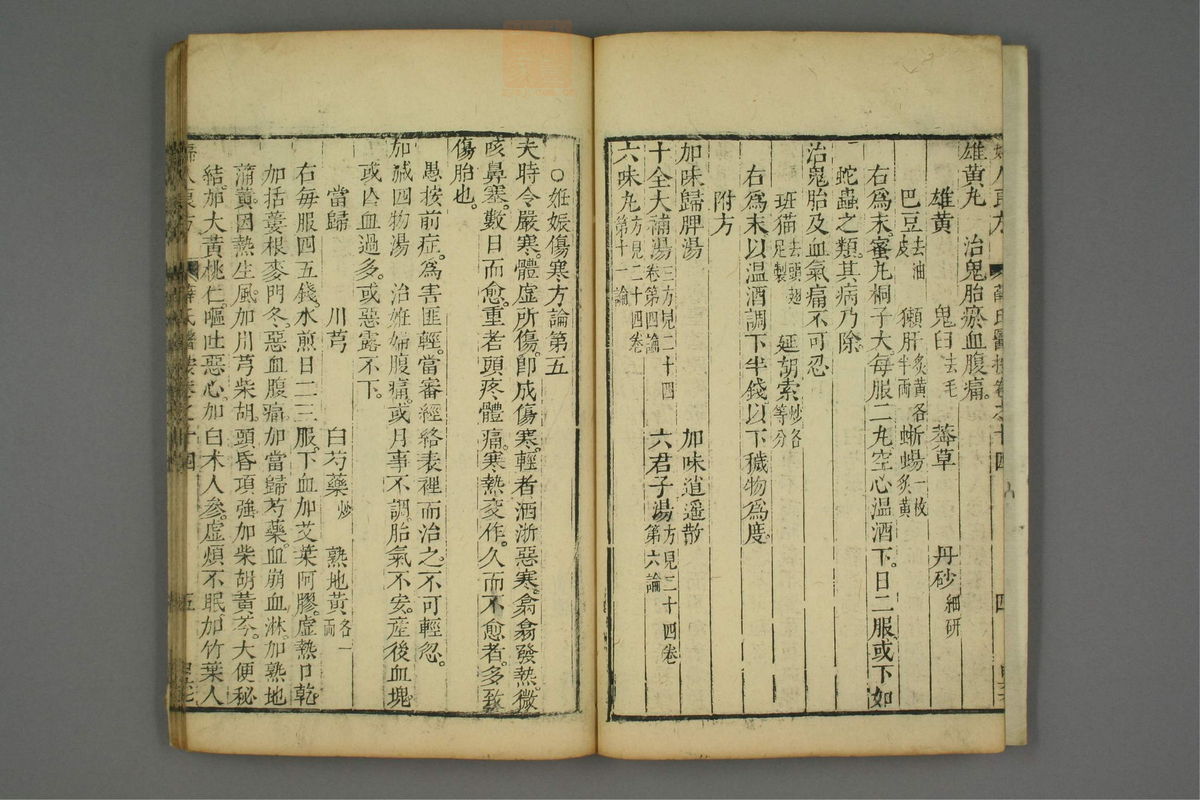 雄黃丸　治鬼胎瘀血腹痛。
雄黃　鬼臼去毛　莾草　丹砂細研
巴豆去油皮　獺肝炙黃各半兩　蜥蜴一枚炙黃
右爲末。蜜丸桐子大。每服二丸空心溫酒下。日二服。或下如
蛇蟲之類。其病乃除。
治鬼胎及血氣痛不可忍
班猫去頭翅足製　延胡索炒各等分
右爲末以温酒調下半錢。以下穢物爲度。
附方
加味歸脾湯　加味逍遥散
十全大補湯三方見二十四卷第四論　六君子湯方見二十四卷第六論
六味丸方見二十四卷第十一論
○姙娠傷寒方論第五
夫時令嚴寒。體虛所傷。卽成傷寒。輕者洒淅惡寒。翕翕發熱。微
咳鼻塞。數日而愈。重者頭疼體痛。寒熱交作。久而不愈者。多致
傷胎也。
愚按前症。爲害匪輕。當審經絡表裡而治之。不可輕忽。
加减四物湯　治姙婦腹痛。或月事不調。胎氣不安。產後血塊。
或亾血過多。或惡露不下。
當歸　川芎　白芍藥炒　熟地黃各一兩
右每服四五錢。水煎日二三服。下血加艾葉阿膠。虛熱口乾
加括蔞根麥門冬。惡血腹痛。加當歸芍藥。血崩血淋。加熟地
蒲黃。因熱生風。加川芎柴胡。頭昏項強。加柴胡黃芩。大便秘
結。加大黃桃仁。嘔吐惡心。加白术人參。虛煩不眠。加竹葉人